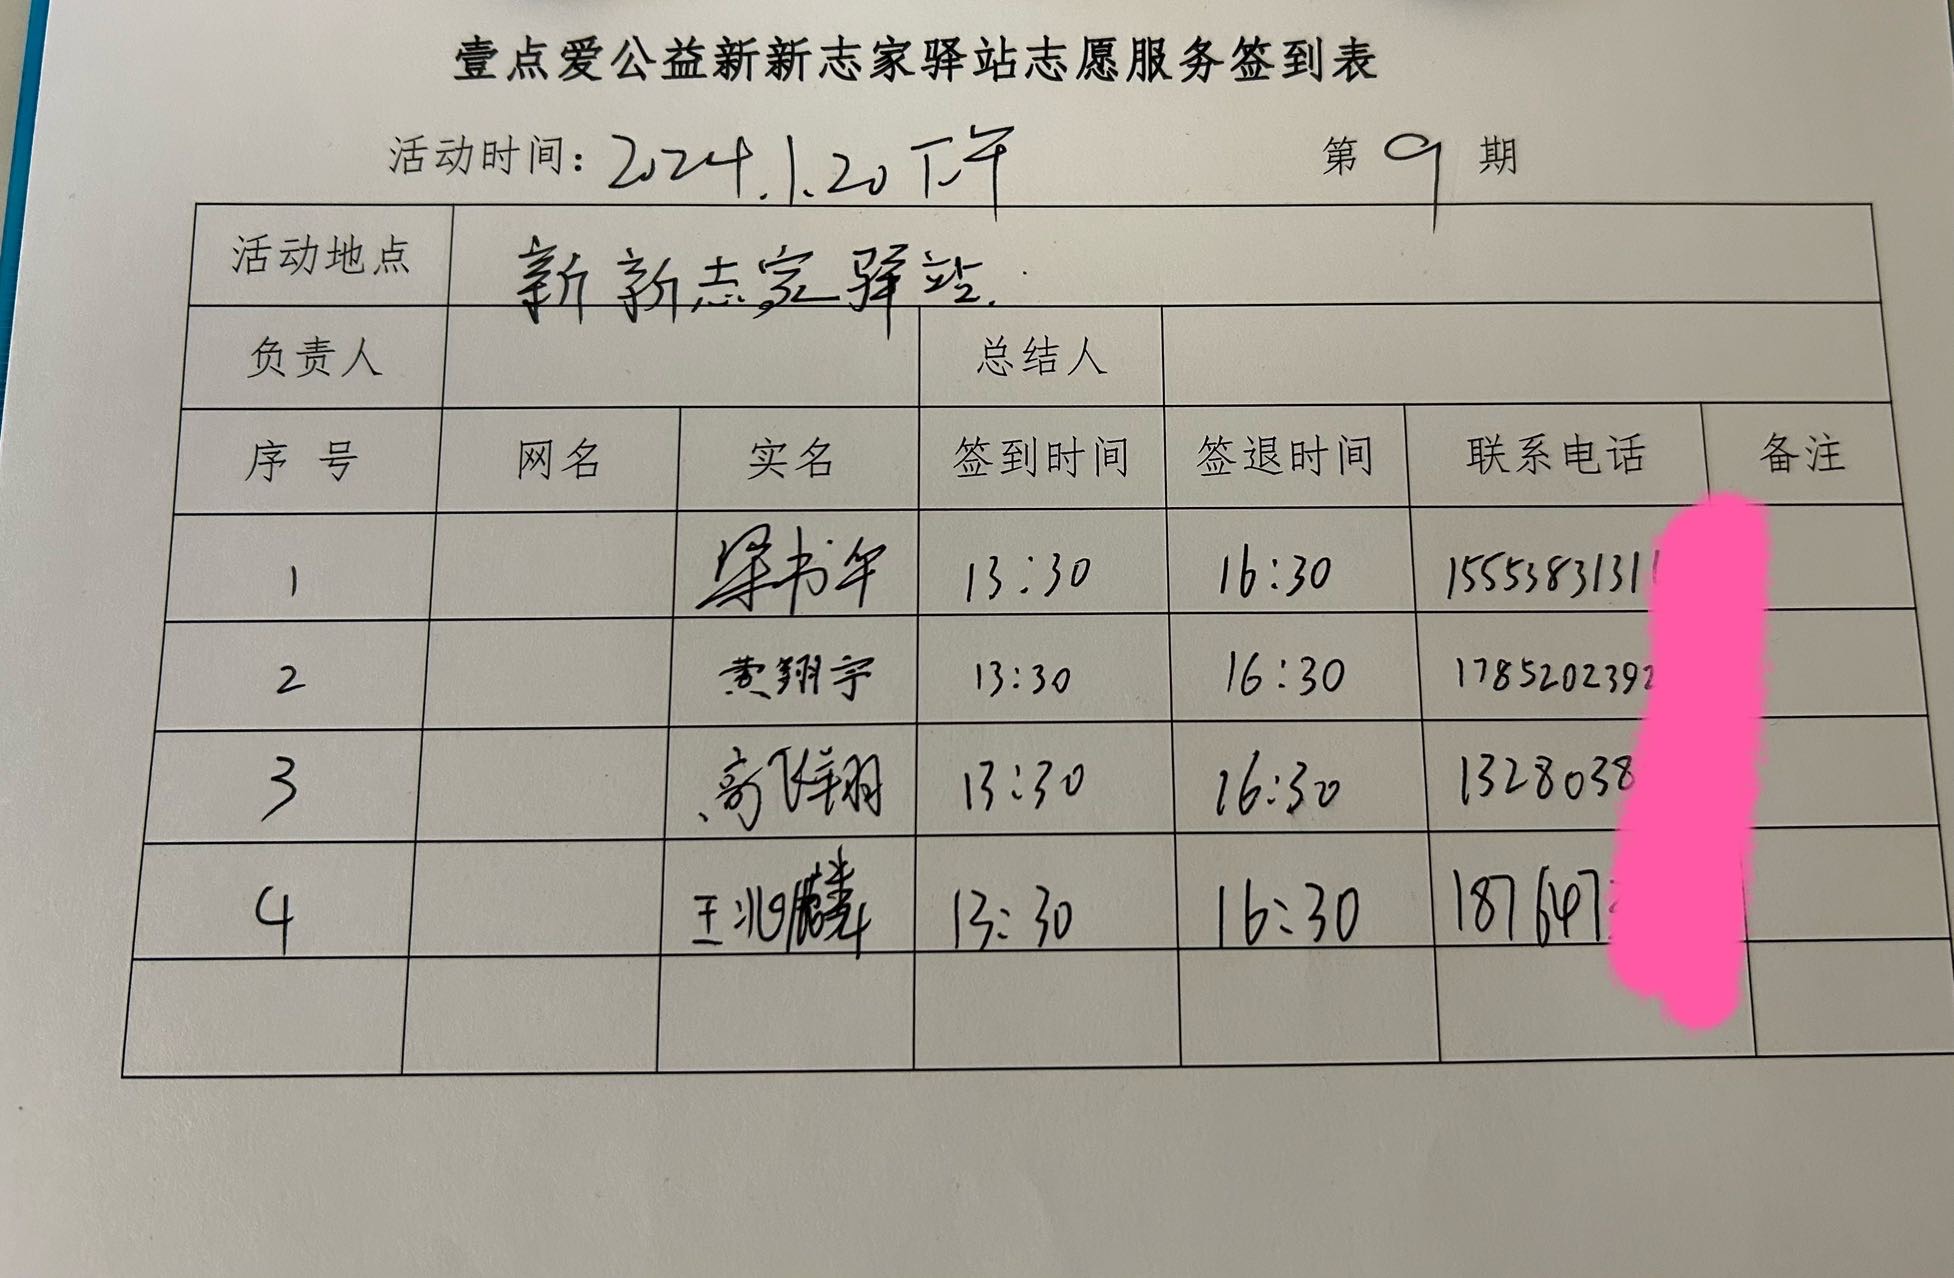 壹点爱公益新新志家驿站志愿服务签到表
活动时间：2024.1.20下午 第9期
活动地点 新新志家驿站.
负责人 总结人
序号 网名 实名 签到时间 签退时间 联系电话 备注
1 梁书年 13:30 16:30 1555383131
2 黄翔宇 13:30 16:30 1785202392
3 高飞翔 13:30 16:30 1328038
4 王兆麟 13:30 16:30 187647